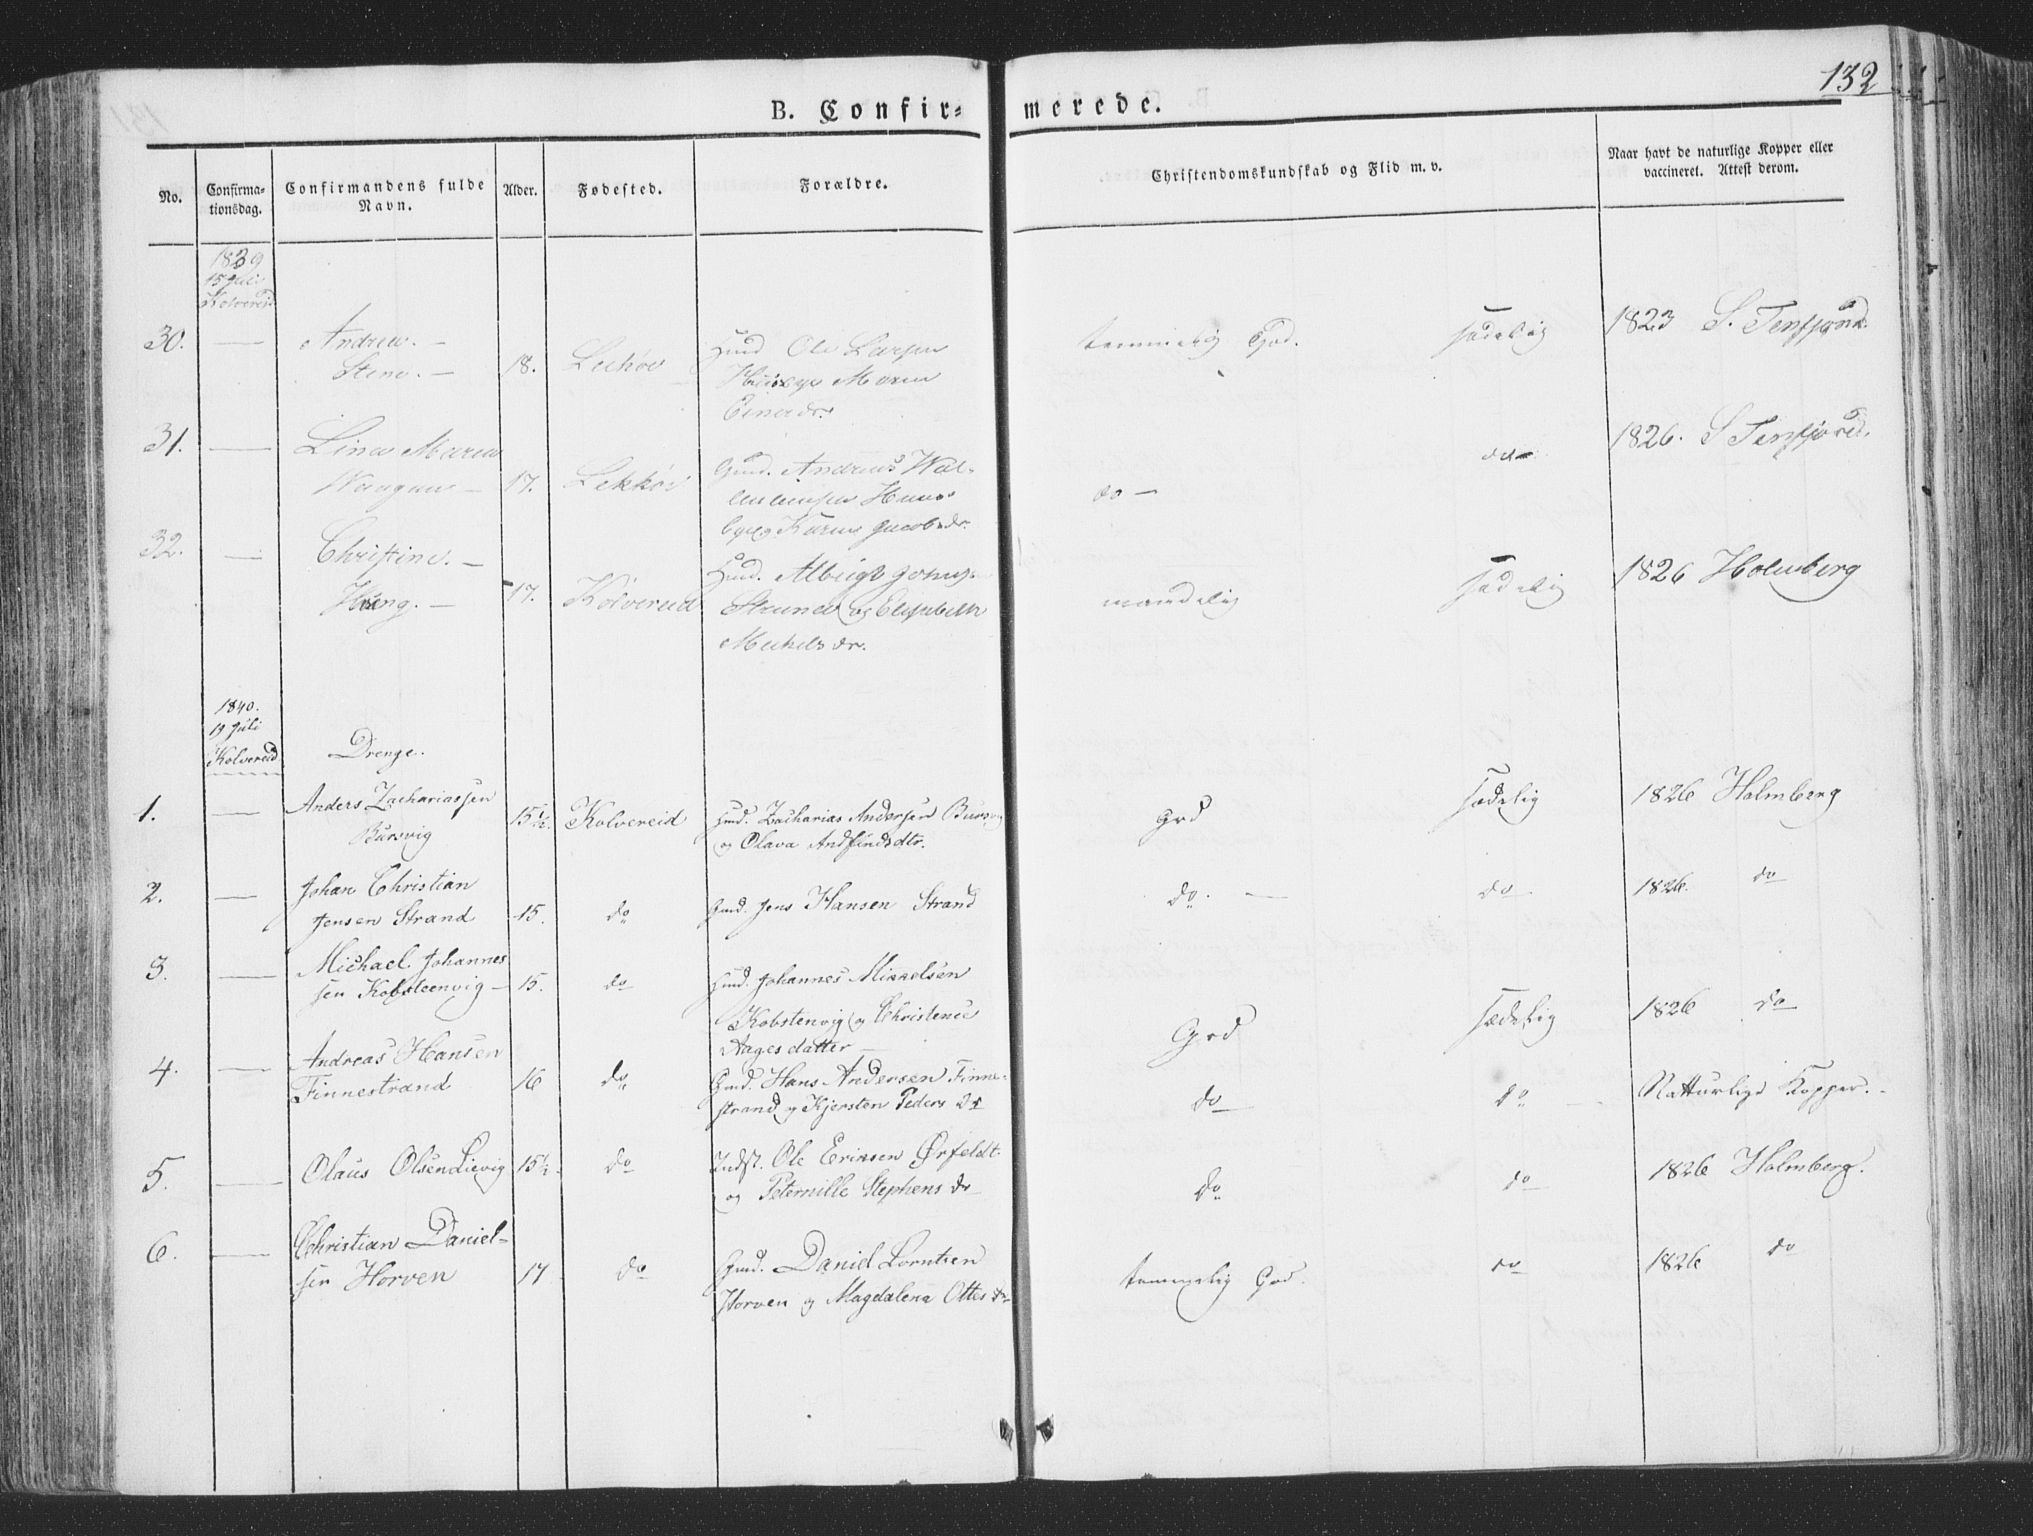 132
B. Confir-merede.
No.
Confirma-
tionsdag.
Confirmandens fulde
Navn.
Alder.
Fødested.
Forældre.
Christendomskundskab og Flid m. v.
Naar havt de naturlige Kopper eller
vaccineret. Attest derom.
1839
15 Juli
Kolvereid
30. — Andrea — Huusmd Ole Larsen temmelig God. sædelig 1823 S. Tensfjord.
Stene. — 18. Lechøe
Maren
31. — Lina Maria Gmd. Andreas Wal- do — 1826. S Tensfjord.
Waagan — 17. Lekkøe do —
og Karen Jacobsdr.
32. — Christine. — Albrigt sædelig 1826 Holmberg
Høeng. — 17. Kolvereid og Elisabeth maadelig
Michelsdr.
1840.
19 Juli
Kolvereid
Drenge.
1. — Anders Zachariassen 15½ Kolvereid Huusmd. Zacharias Andersen Bursvig God sædelig 1826 Holmberg
Bursvig og Olava Andfindsdtr.
2. — Johan Christian
Jensen Strand 15. do Gmd. Jens Hansen Strand do. — do 1826. do
3. — Michael Johannes Huusmd. Johannes Mikkelsen
sen Kobsteenvig — 15. do Kobstenvig og Christence God sædelig 1826 do
Aagesdatter —
4. — Andreas Hansen Gmd. Hans Andersen Finne-
Finnestrand 16 do strand og Kjersten Peders dr do do Natturlige Kopper.
5. — Olaus Olsen Lievig 15½ do Indst. Ole Ericsen Ørfeldt do do 1826 Holmberg.
og Peternille Stephens dr
6. — Christian Daniel- Gmd. Daniel Lorntsen
sen Horven 17 do Horven og Magdalena Ottes dr temmelig God. do 1826 do